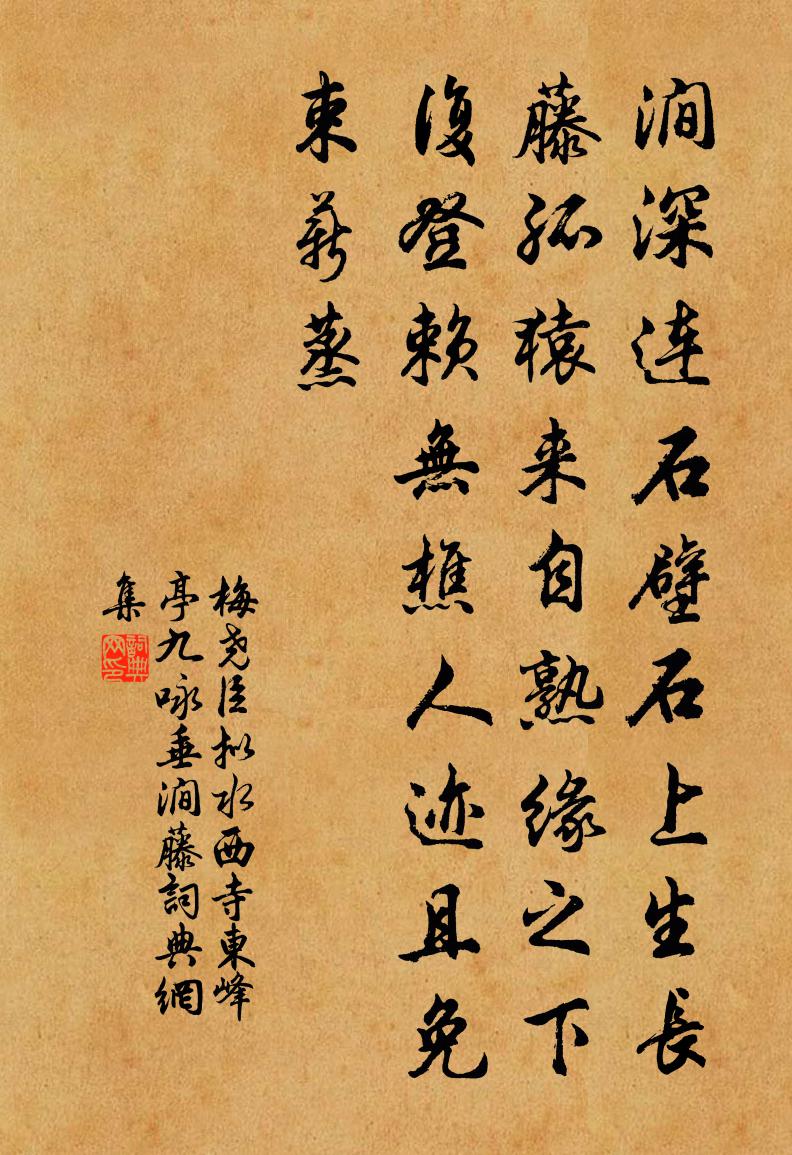 澗深連石壁石上生長
藤孤猿来自熟緣之下
復登賴無樵人迹且免
束薪蒸
梅尧臣拟水西寺東峰
亭九咏垂澗藤詞典網
集
詞典網印